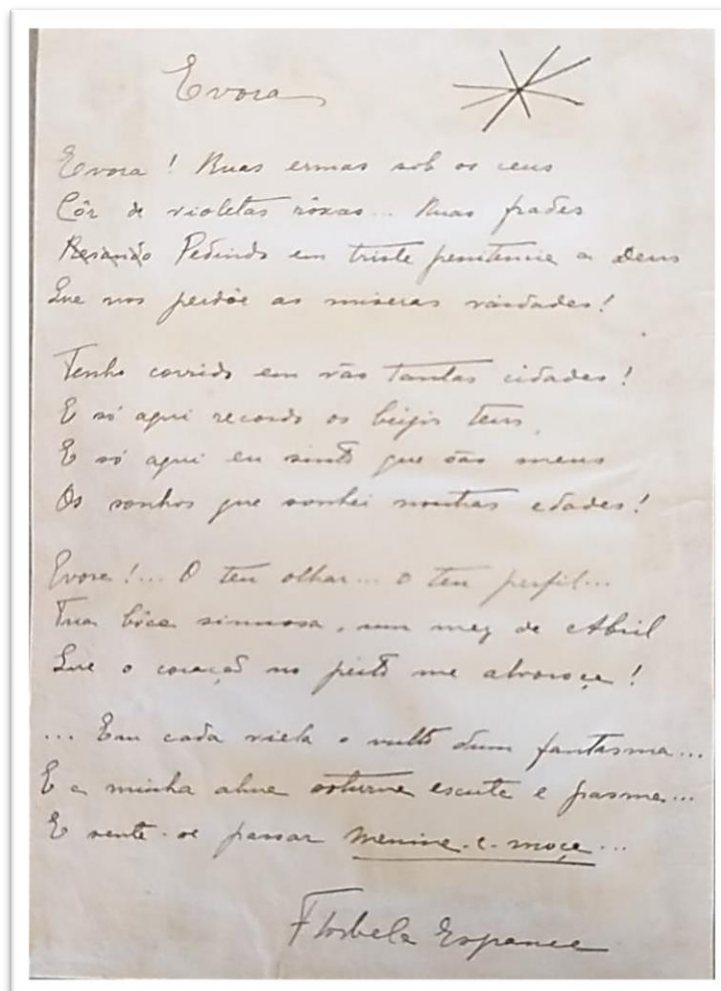 Evora
Evora! Ruas ermas sob os ceus
Côr de violetas rôxas... Ruas frades
Resando Pedindo em triste penitencia a Deus
Que nos perdôe as miseras vaidades!
Tenho corrido em vão tantas cidades!
E só aqui recordo os beijos teus,
E só aqui eu sinto que são meus
Os sonhos que sonhei noutras edades!
Evora!... O teu olhar... o teu perfil...
Tua bôca sinuosa, um mez de Abril
Que o coração no peito me alvoroça!
... Em cada viela o vulto dum fantasma...
E a minha alma soturna escuta e pasma...
E sente-se passar menina-e-moça...
Florbela Espanca